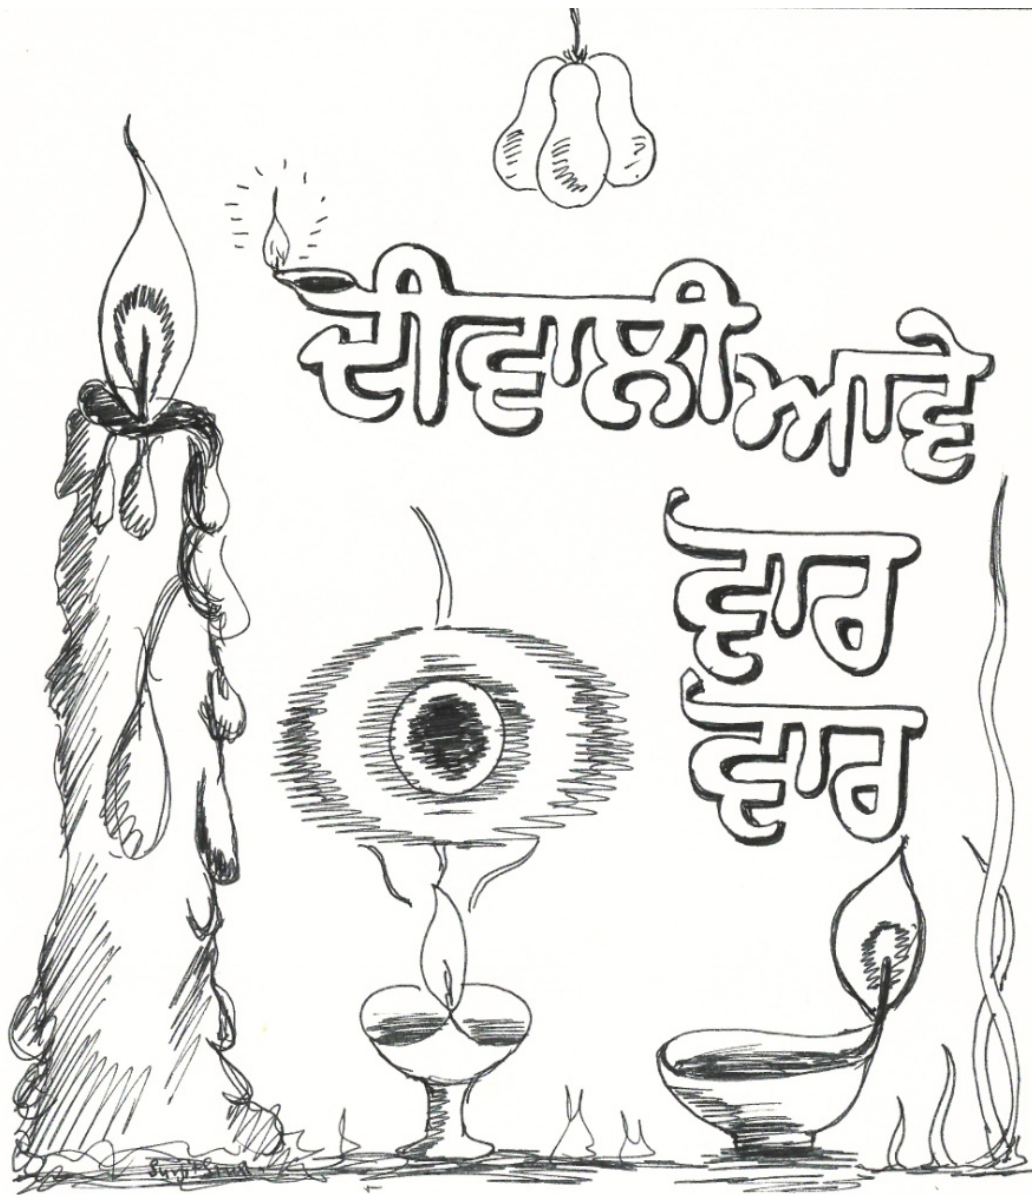 ਦੀਵਾਲੀ ਆਵੇ
ਵਾਰ
ਵਾਰ